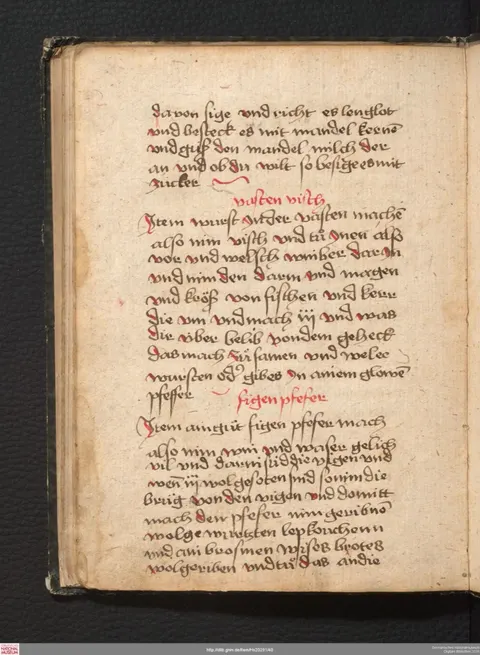 da von sige vnd richt es longlot
vnd besteck es mit mandel kernē
vnd guß den mandel milch der
an vnd ob du wilt so besige es mit
zucker
vasten visch
Item wurst In der vasten machē
also nim visch vnd tů Inen alß
vor vnd welsch winber dar In
vnd nim den darm vnd magen
vnd kröß von fischen vnd kerr
die vm vnd mach iij vnd was
dir über belib von dem geheck
das mach zů samen vnd
wursten od gibes In ainem
pfeffer
figen pfefer
Item ain gůt figen pfefer mach
also nim win vnd waser gelich
vil vnd darin süd die vigen vnd
wen wol gesoten sind so nim die
brüg von den vigen vnd domitt
mach den pfefer nim geribnē
wolge wurtzten lepkuchen
vnd ain brosmen wises brotes
wolgeriben vnd tů das an die
http://dlib.gnm.de/item/Hs20291/45